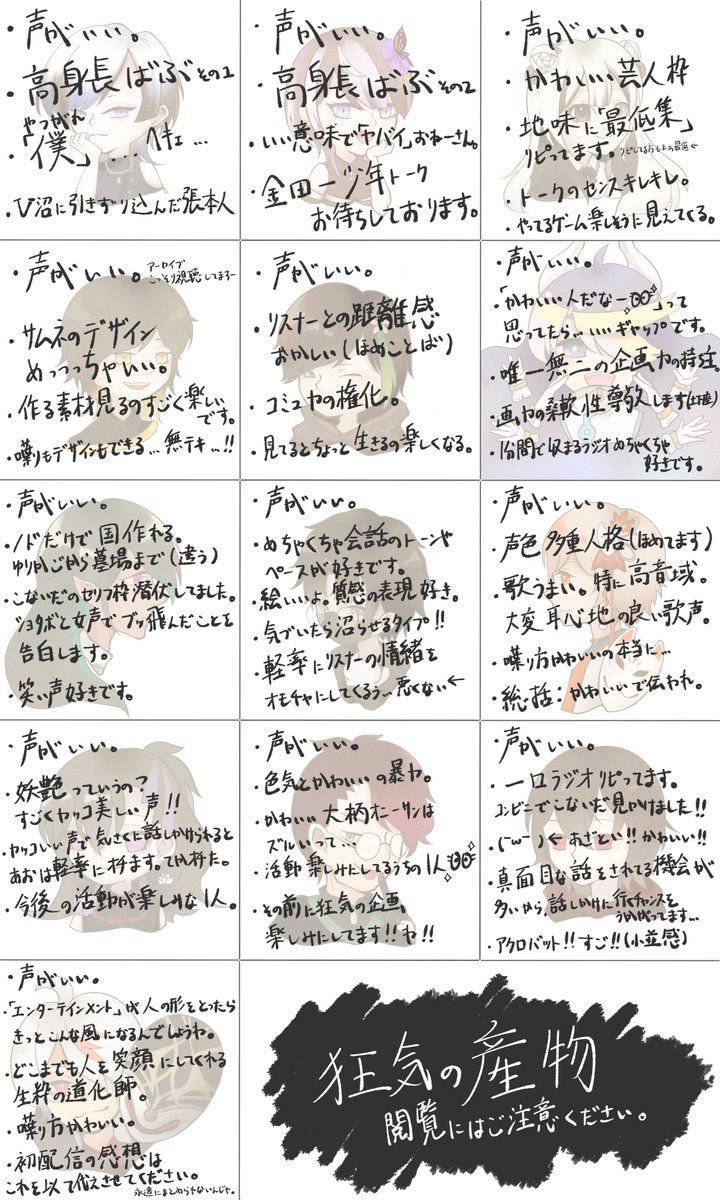 ・声がいい。
・高身長ばぶその1
やつがん
・「僕」…ﾍｷｪ…
・V沼に引きずり込んだ張本人
・声がいい。
・高身長ばぶその2
・いい意味で「ヤバイ」おねーさん。
・金田一少年トーク
お待ちしております。
・声がいい。
・かわいい芸人枠
・地味に「最低集」
リピってます。
・トークのセンスキレキレ。
・やってるゲーム楽しそうに見えてくる。
・声がいい。
アーカイブ
こっそり視聴してまるー
・サムネのデザイン
めっっっちゃいい。
・作る素材見るのすごく楽しい
です。
・喋りもデザインもできる…無テキ…!!
・声がいい。
・リスナーとの距離感
おかしい(ほめことば)
・コミュ力の権化。
・見てるとちょっと生きるの楽しくなる。
・声がいい。
・「かわいい人だなー」って
思ってたら…いいギャップです。
・唯一無二の企画力の持主。
・画力の柔軟性尊敬します
・1分間で収まるラジオめちゃくちゃ
好きです。
・声がいい。
・ノドだけで国作れる。
ゆりかごから墓場まで(違う)
・こないだのセリフ枠潜伏してました。
ショタボと女声でブッ飛んだことを
告白します。
・笑い声好きです。
・声がいい。
・めちゃくちゃ会話のトーンや
ペースが好きです。
・絵いいよ。質感の表現好き。
・気づいたら沼らせるタイプ!!
・軽率にリスナーの情緒を
オモチャにしてくるぅ…悪くない←
・声がいい。
・声色多重人格(ほめてます)
・歌うまい。特に高音域。
大変耳心地の良い歌声。
・喋り方かわいいの本当に…
・総括:かわいいで伝われ。
・声がいい。
・妖艶っていうの?
すごくカッコ美しい声!!
・カッコいい声で気さくに話しかけられると
あおは軽率に朴ます。てか朴た。
・今後の活動が楽しみな1人。
・声がいい。
・色気とかわいいの暴力。
・かわいい大柄オニーサンは
ズルいって…
・活動楽しみにしてるうちの1人
・その前に狂気の企画
楽しみにしてます!!ヮ!!
・声がいい。
・一口ラジオリピってます。
コンビニでこないだ見かけました!!
・(˘ω˘)←あざとい!!かわいい!!
・真面目な話をされてる機会が
多いから、話しかけに行くチャンスを
うかがってます…
・アクロバット!!すご!!(小並感)
・声がいい。
・「エンターテインメント」が人の形をとったら
きっとこんな風になるんでしょうね。
・どこまでも人を笑顔にしてくれる
生粋の道化師。
・喋り方かわいい。
・初配信の感想は
これを以て代えさせてください。
永遠にまとめられないんじゃ。
狂気の産物
閲覧にはご注意ください。